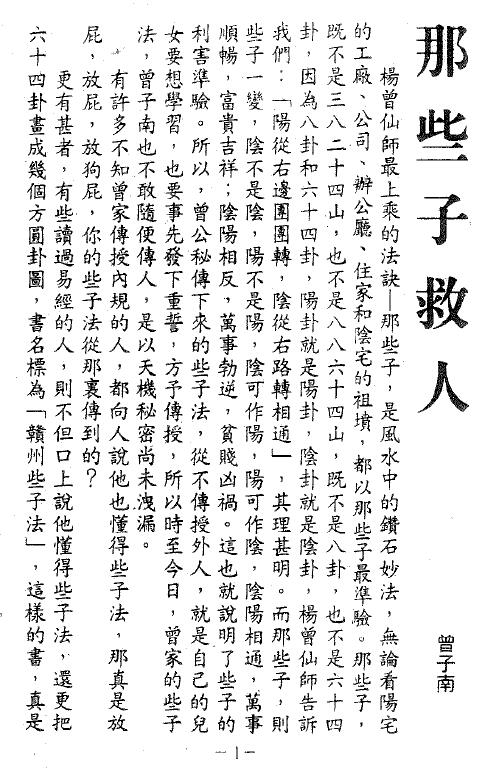 那些子救人
曾子南
楊曾仙師最上乘的法訣─那些子,是風水中的鑽石妙法,無論看陽宅
的工廠、公司、辦公廳、住家和陰宅的祖墳,都以那些子最準驗。那些子,
既不是三八二十四山,也不是八八六十四山,既不是八卦,也不是六十四
卦,因為八卦和六十四卦,陽卦就是陽卦,陰卦就是陰卦,楊曾仙師告訴
我們:「陽從右邊團團轉,陰從右路轉相通」,其理甚明。而那些子,則
些子一變,陰不是陰,陽不是陽,陰可作陽,陽可作陰,陰陽相通,萬事
順暢,富貴吉祥;陰陽相反,萬事勃逆,貧賤凶禍。這也就說明了些子的
利害準驗。所以,曾公秘傳下來的些子法,從不傳授外人,就是自己的兒
女要想學習,也要事先發下重誓,方予傳授,所以時至今日,曾家的些子
法,曾子南也不敢隨便傳人,是以天機秘密尚未洩漏。
有許多不知曾家傳授內規的人,都向人說他也懂得些子法,那真是放
屁,放屁,放狗屁,你的些子法從那裏傳到的?
更有甚者,有些讀過易經的人,則不但口上說他懂得些子法,還更把
六十四卦畫成幾個方圓卦圖,書名標為「贛州些子法」,這樣的書,真是
—1—